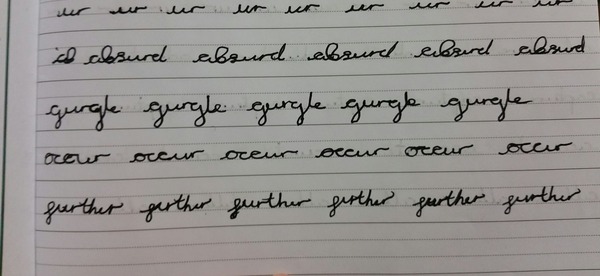 ur ur ur ur ur ur ur ur ur
absurd absurd absurd absurd absurd
gurgle gurgle gurgle gurgle gurgle
occur occur occur occur occur occur
further further further further further further